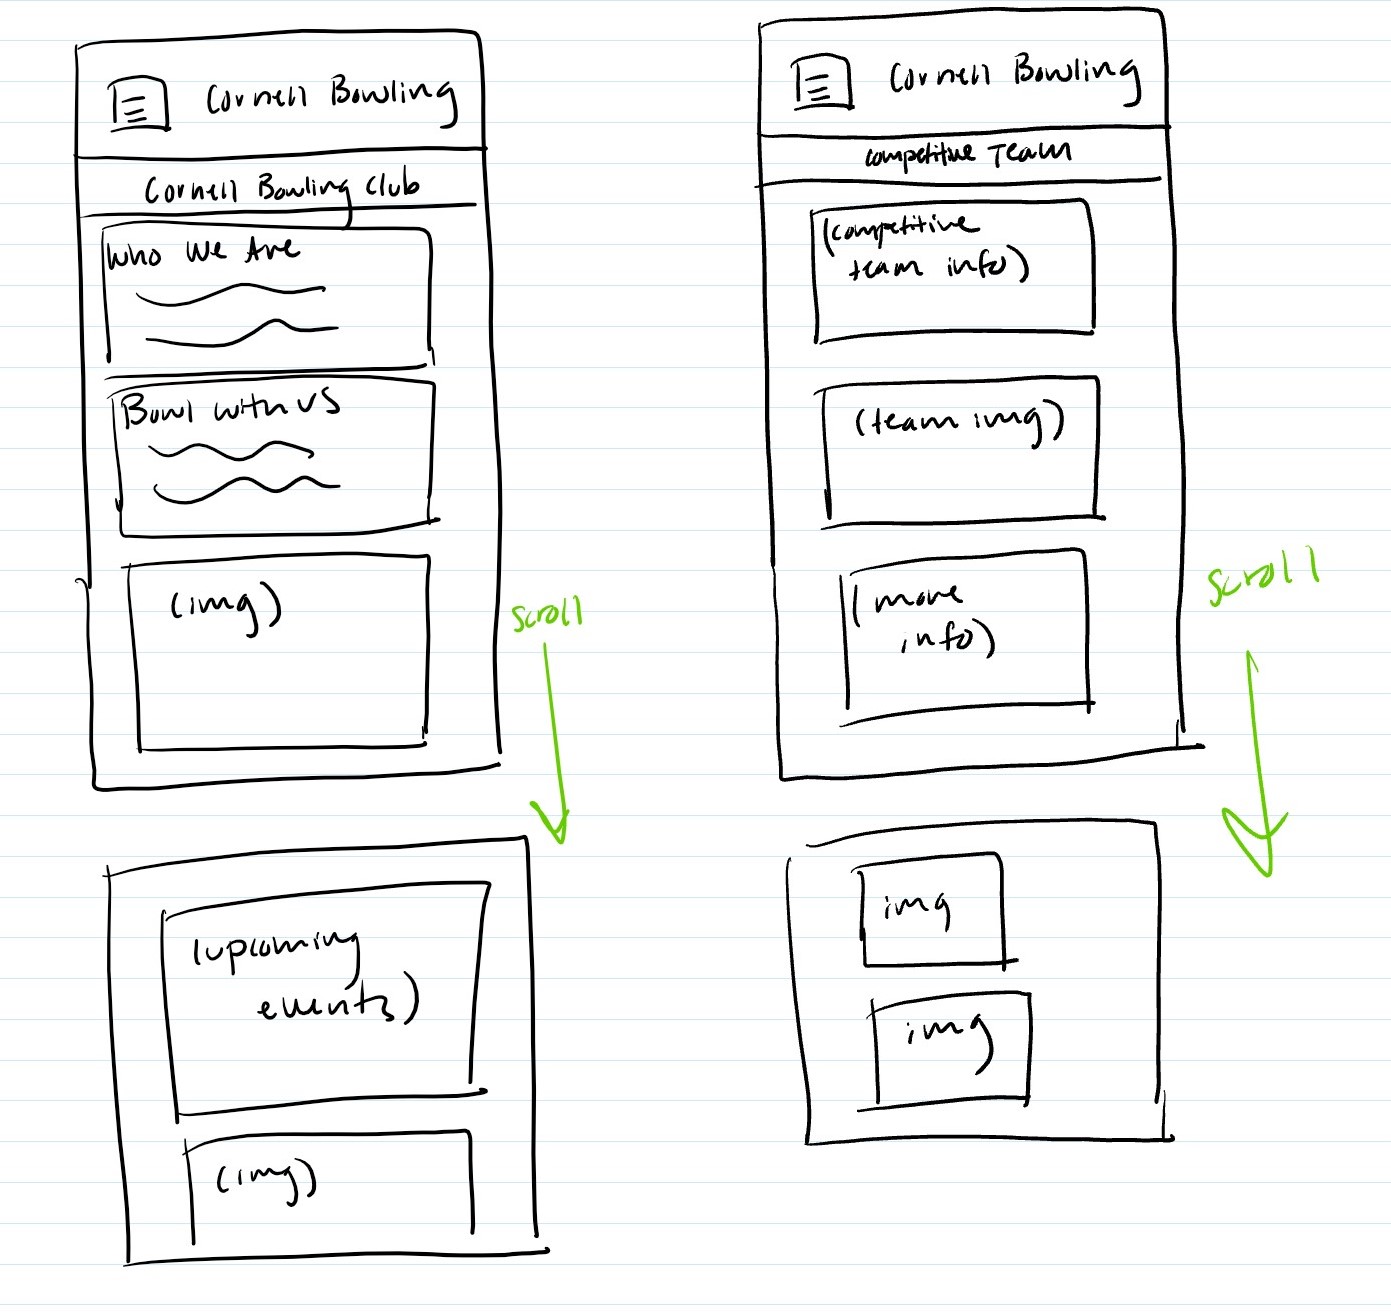 Cornell Bowling
Cornell Bowling Club
Who We Are
Bowl with us
(img)
scroll
(upcoming
events)
(img)
Cornell Bowling
competitive Team
(competitive
team info)
(team img)
(more
info)
scroll
img
img